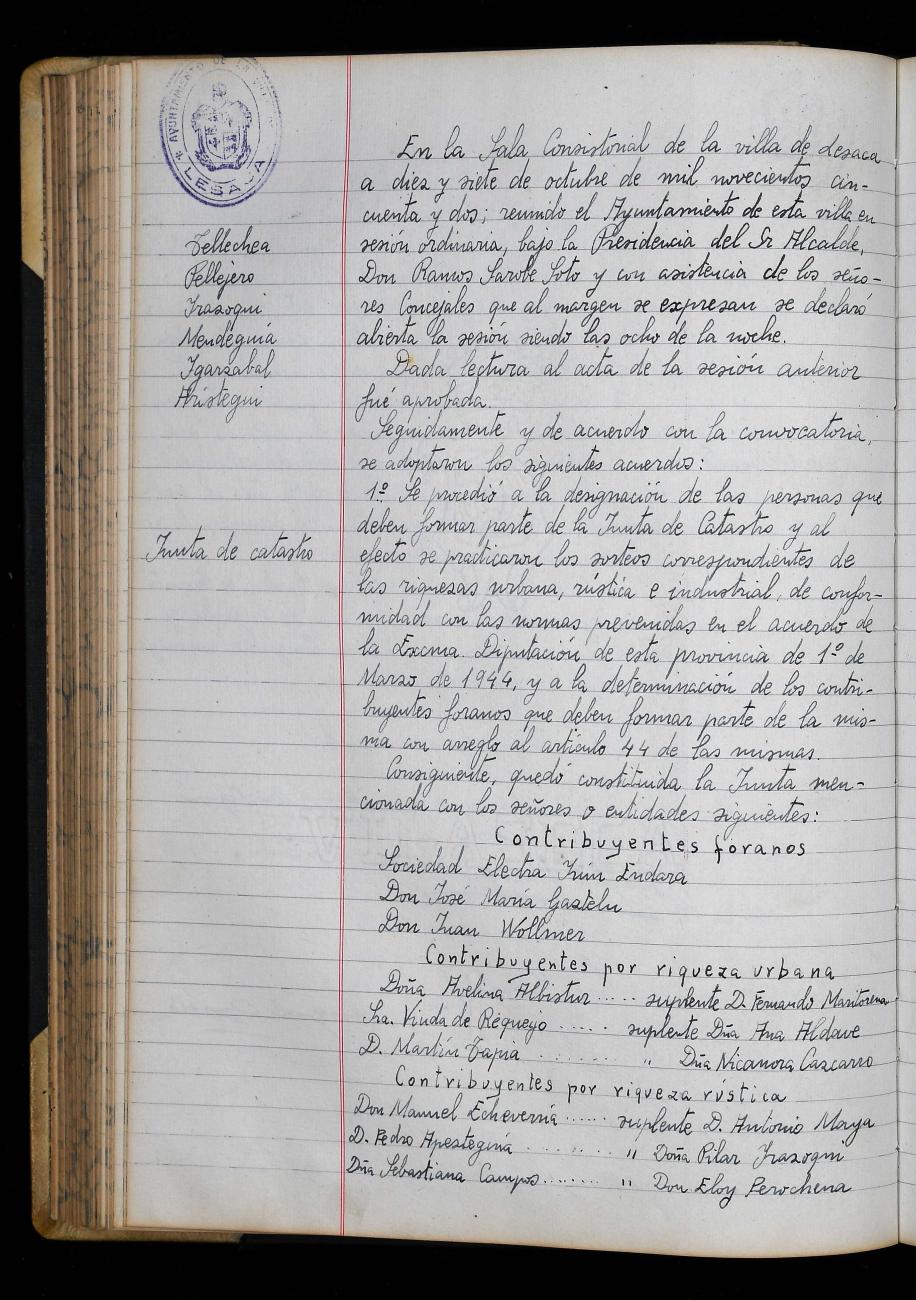 AYUNTAMIENTO DE LA VILLA
LESACA
En la Sala Consistorial de la villa de Lesaca
a diez y siete de octubre de mil novecientos cin-
cuenta y dos; reunido el Ayuntamiento de esta villa en
sesión ordinaria, bajo la Presidencia del Sr Alcalde,
Don Ramos Sarobe Soto y con asistencia de los seño-
res Concejales que al margen se expresan se declaró
abierta la sesión siendo las ocho de la noche.
Tellechea
Pellejero
Irazoqui
Mendeguía
Igarzabal
Aristegui
Dada lectura al acta de la sesión anterior
fué aprobada.
Seguidamente y de acuerdo con la convocatoria,
se adoptaron los siguientes acuerdos:
Junta de catastro
1º Se procedió a la designación de las personas que
deben formar parte de la Junta de Catastro y al
efecto se practicaron los sorteos correspondientes de
las riquesas urbana, rústica e industrial, de confor-
midad con las normas prevenidas en el acuerdo de
la Excma. Diputación de esta provincia de 1º de
Marzo de 1944, y a la determinación de los contri-
buyentes foranos que deben formar parte de la mis-
ma con arreglo al artículo 44 de las mismas.
Consiguiente, quedó constituida la Junta men-
cionada con los señores o entidades siguientes:
Contribuyentes foranos
Sociedad Electra Irún Endara
Don José María Gaztelu
Don Juan Wollmer
Contribuyentes por riqueza urbana
Doña Avelina Albistur ..... suplente D. Fernando Maritorena
Sra. Viuda de Requejo ..... suplente Dña Ana Aldave
D. Martín Tapia ........ " Dña Nicanora Cazcarro
Contribuyentes por riqueza rústica
Don Manuel Echeverría ...... suplente D. Antonio Maya
D. Pedro Apesteguía ........ " Doña Pilar Irazoqui
Dña Sebastiana Campos ........ " Don Eloy Perochena